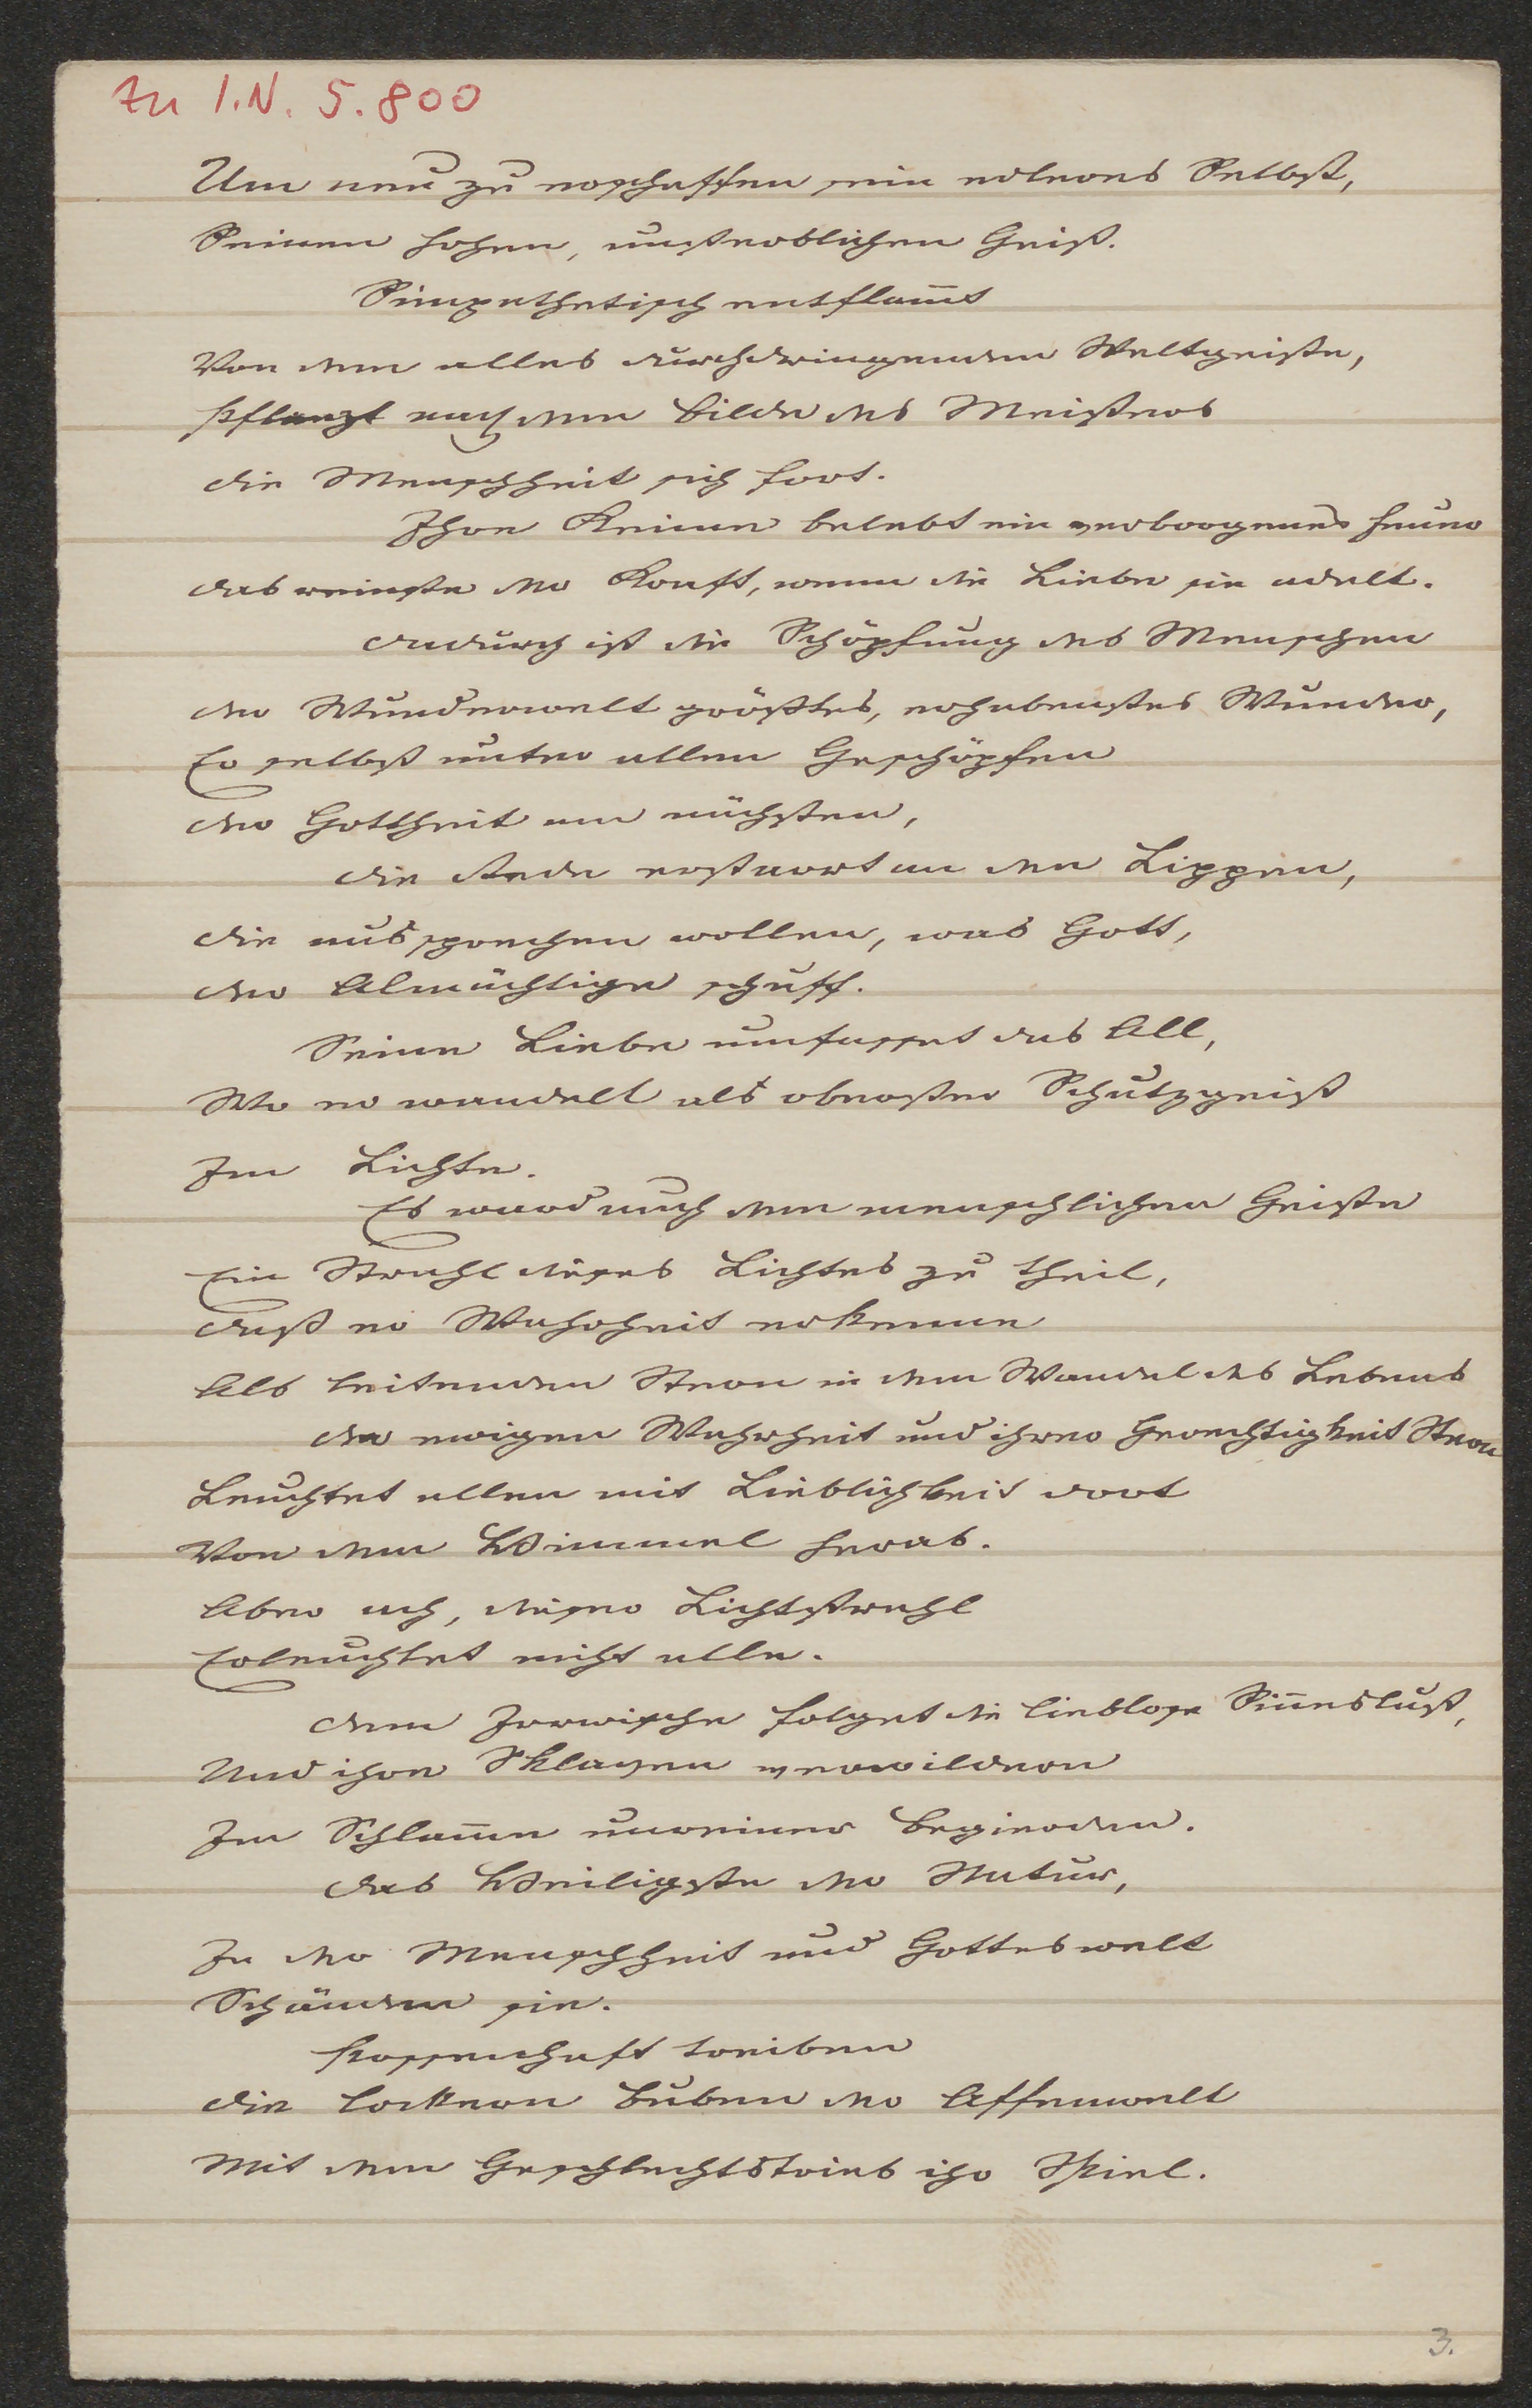 Zu I.N. 5.800
Um neu zu erschaffen sein edleres Selbst,
Seinen hohen, unsterblichen Geist.
Simpathetisch entflam̄t
Von dem alles durchdringenden Weltgeiste,
Pflanzt nach dem Bilde des Meisters
die Menschheit sich fort.
Ihre Keime belebt ein verborgenes Feuer
das reinste der Kraft, wenn die Liebe sie adelt.
dadurch ist die Schöpfung des Menschen
der Wunderwelt größtes, erhabenstes Wunder,
Er selbst unter allen Geschöpfen
der Gottheit am nächsten,
die Rede erstarrt an den Lippen,
die aussprechen wollen, was Gott,
der Almächtige schuff.
Seine Liebe umfasset das All,
Wo er wandelt als oberster Schutzgeist
Im Lichte.
Es ward auch dem menschlichen Geiste
Ein Strahl dieses Lichtes zu theil,
daß er Wahrheit erkenne
Als leitenden Stern in dem Wandel des Lebens
der ewigen Wahrheit und ihrer Gerechtigkeit Stern
Leuchtet allen mit Lieblichkeit dort
Von dem Himmel herab.
Aber ach, dieser Lichtstrahl
Erleuchtet nicht alle.
dem Irrwische folget die lieblose Sin̄eslust,
Und ihre Sklaven verwildern
Im Schlam̄e unreiner Begierden.
das Heiligste der Natur,
In der Menschheit und Gotteswelt
Schänden sie.
Possenhaft treiben
die lockern Buben der Affenwelt
Mit dem Geschlechtstrieb ihr Spiel.
3.